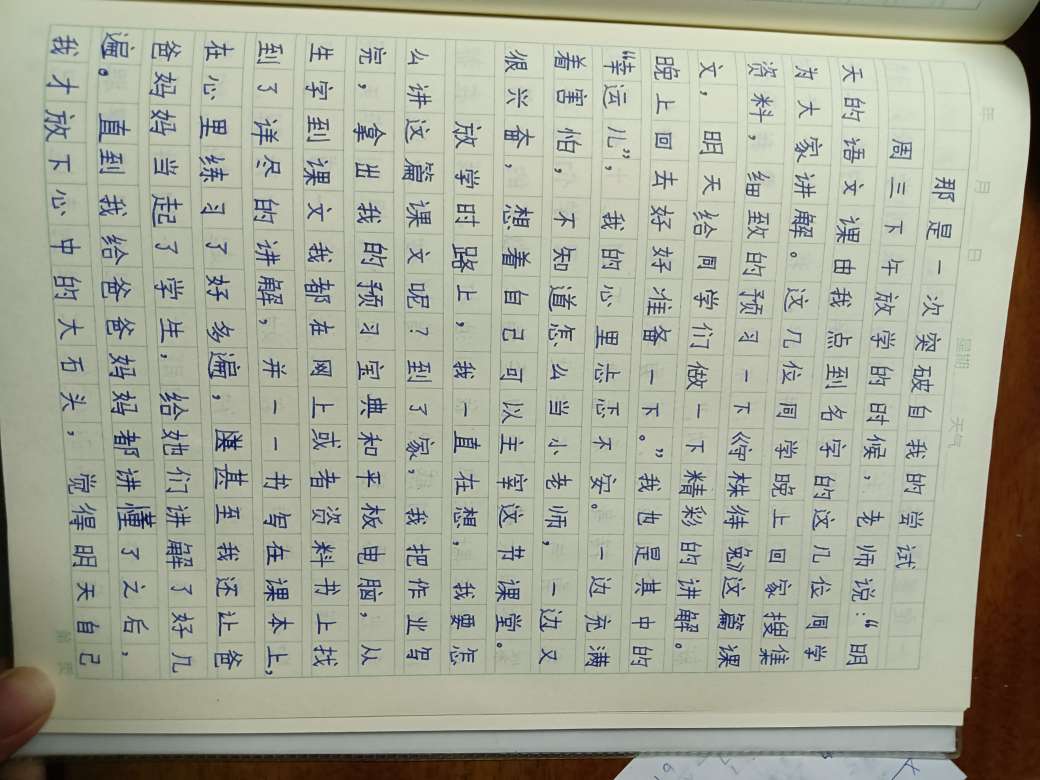 年 月 日 星期 天气
那是一次突破自我的尝试
周三下午放学的时候，老师说：“明
天的语文课由我点到名字的这几位同学
为大家讲解。这几位同学晚上回家搜集
资料，细致的预习一下《守株待兔》这篇课
文，明天给同学们做一下精彩的讲解。
晚上回去好好准备一下。”我也是其中的
“幸运儿”，我的心里忐忑不安。一边充满
着害怕，不知道怎么当小老师，一边又
很兴奋，想着自己可以主宰这节课堂。
放学时路上，我一直在想，我要怎
么讲这篇课文呢？到了家，我把作业写
完，拿出我的预习宝典和平板电脑，从
生字到课文我都在网上或者资料书上找
到了详尽的讲解，并一一书写在课本上，
在心里练习了好多遍，甚至我还让爸
爸妈妈当起了学生，给她们讲解了好几
遍。直到我给爸爸妈妈都讲懂了之后，
我才放下心中的大石头，觉得明天自己
第 页